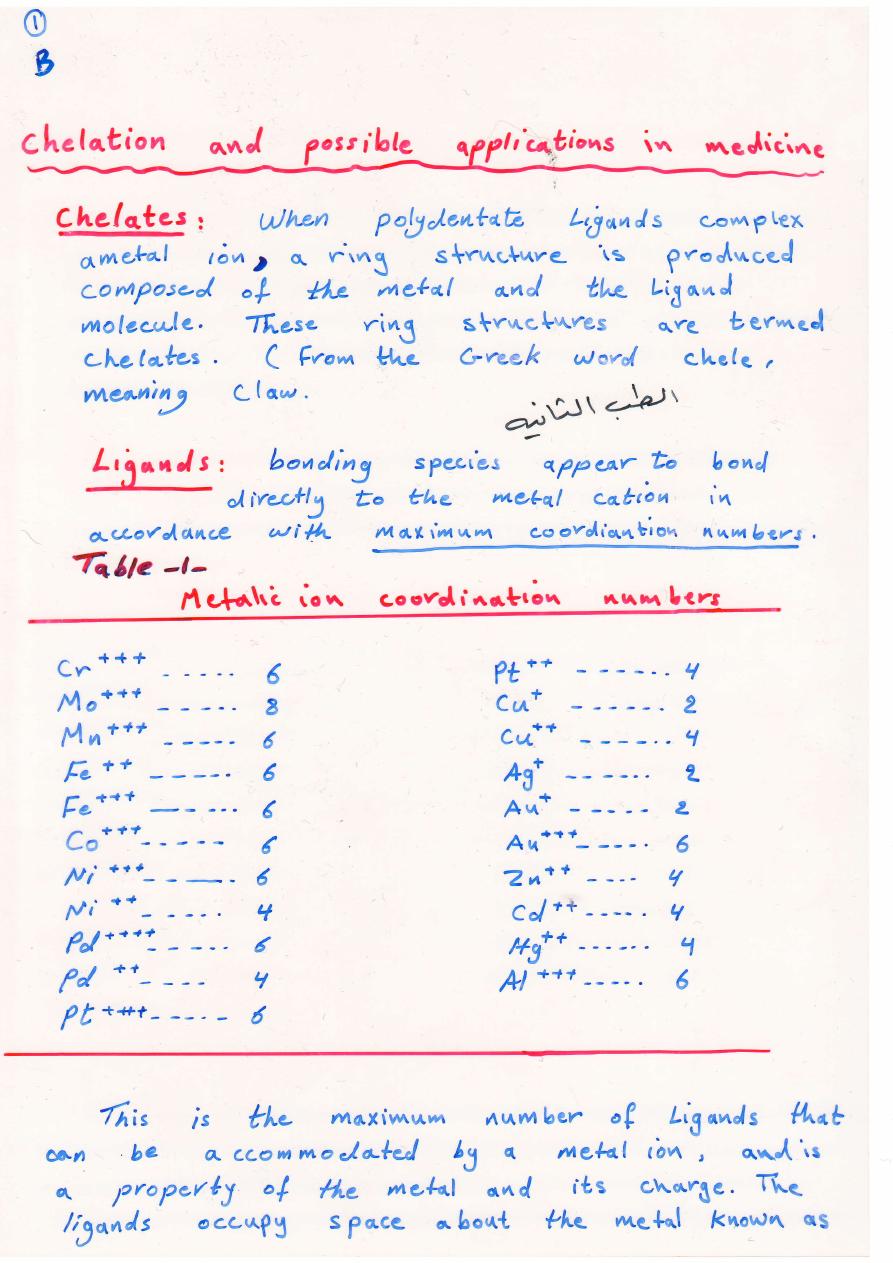 1
B
Chelation and possible applications in medicine
Chelates: When polydentate Ligands complex
ametal ion, a ring structure is produced
composed of the metal and the Ligand
molecule. These ring structures are termed
chelates. ( From the Greek word chele,
meaning Claw.
الطب الثانيه
Ligands: bonding species appear to bond
directly to the metal cation in
accordance with maximum coordiantion numbers.
Table -1-
Metalic ion coordination numbers
Cr+++ ----- 6 Pt++ ------ 4
Mo+++ ----- 8 Cu+ ------ 2
Mn+++ ----- 6 Cu++ ------ 4
Fe++ ----- 6 Ag+ ------ 2
Fe+++ ----- 6 Au+ ----- 2
Co+++ ----- 6 Au+++ ----- 6
Ni+++ ----- 6 Zn++ ---- 4
Ni++ ----- 4 Cd++ ----- 4
Pd++++ ----- 6 Hg++ ----- 4
Pd++ ---- 4 Al+++ ----- 6
Pt++++ ----- 6
This is the maximum number of Ligands that
can be accommodated by a metal ion, and is
a property of the metal and its charge. The
ligands occupy space about the metal known as